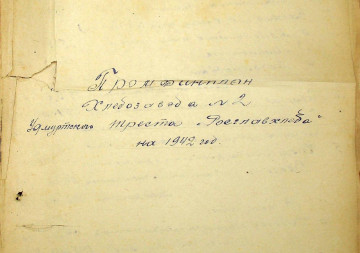 Промфинплан
Хлебозавода №2
Удмуртского треста „Росглавхлеба"
на 1942 год.